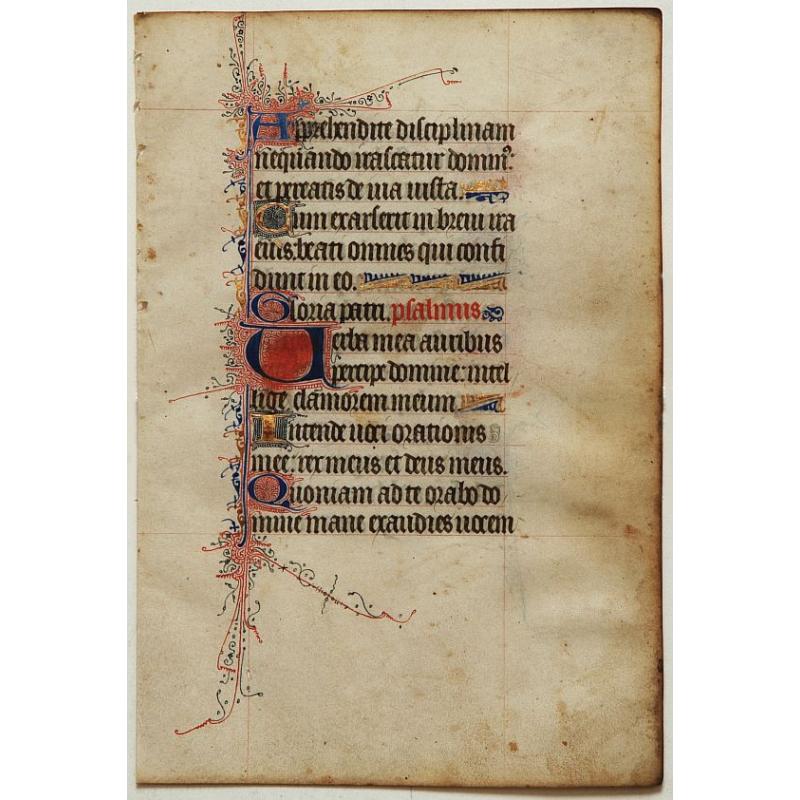 Apprehendite disciplinam
nequando irascatur domin⁹:
et pereatis de uia iusta.
Cum exarserit in breui ira
eius: beati omnes qui confi
dunt in eo.
Gloria patri. psalmus
Uerba mea auribus
percipe domine: intel
lige clamorem meum
Intende uoci orationis
mee: rex meus et deus meus.
Quoniam ad te orabo do
mine mane exaudies uocem